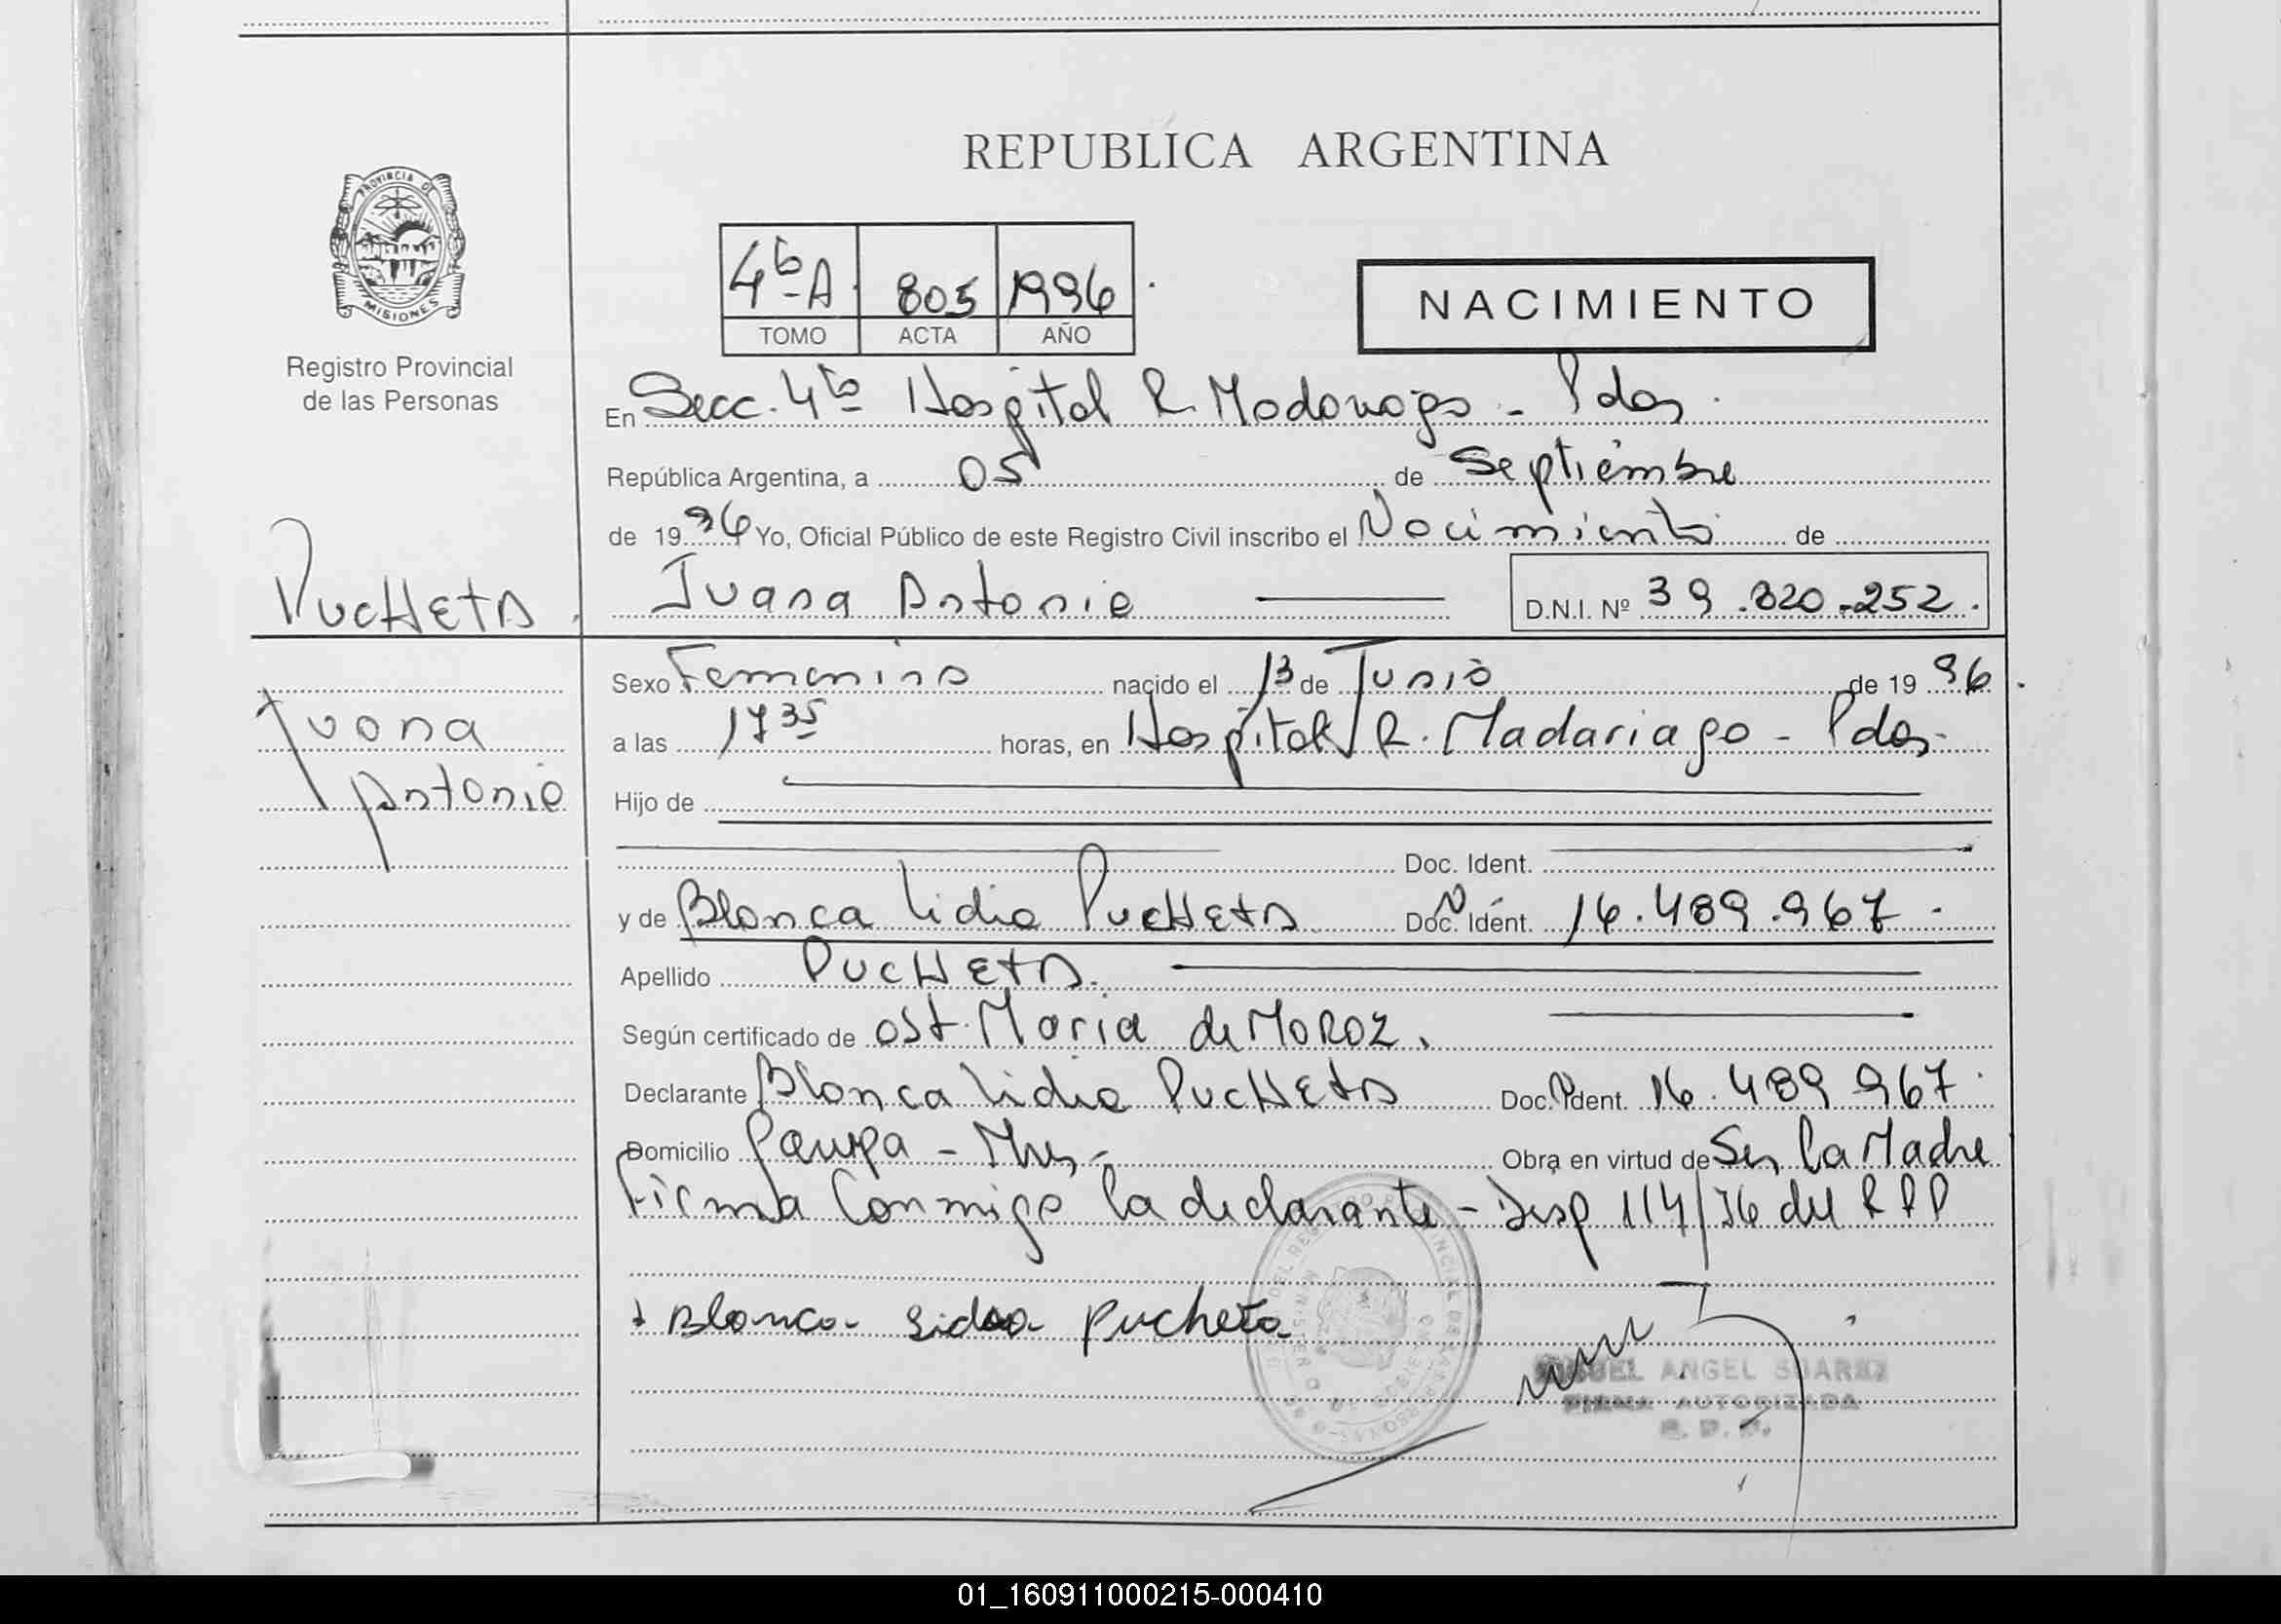 REPUBLICA ARGENTINA
PROVINCIA DE
MISIONES
Registro Provincial
de las Personas
4ta A 805 1996
TOMO ACTA AÑO
NACIMIENTO
En Secc. 4ta Hospital R. Madariaga - Pdas.
República Argentina, a 05 de Septiembre
de 1996 Yo, Oficial Público de este Registro Civil inscribo el Nacimiento de
PUCHETA. Juana Antonia D.N.I. Nº 39.820.252.
Sexo Femenino nacido el 13 de Junio de 1996.
Juana
a las 17 35 horas, en Hospital R. Madariaga - Pdas.
Antonia
Hijo de
Doc. Ident.
y de Blanca Lidia PUCHETA Doc. Ident. 16.489.967.
Apellido PUCHETA.
Según certificado de Ost. Maria de MOROZ.
Declarante Blanca Lidia PUCHETA Doc. Ident. 16.489.967.
Domicilio Obra en virtud de Ser la Madre
Firma Conmigo la declarante - Disp 114/96 del RPP
Blanca Lidia Pucheta
MIGUEL ANGEL SUAREZ
FIRMA AUTORIZADA
R. P. P.
01_160911000215-000410